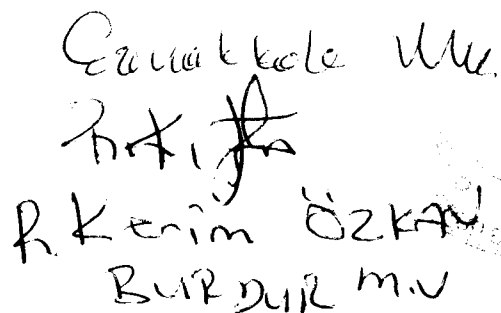 Çanakkale Mv.
R. Kerim ÖZKAN
BURDUR M.V